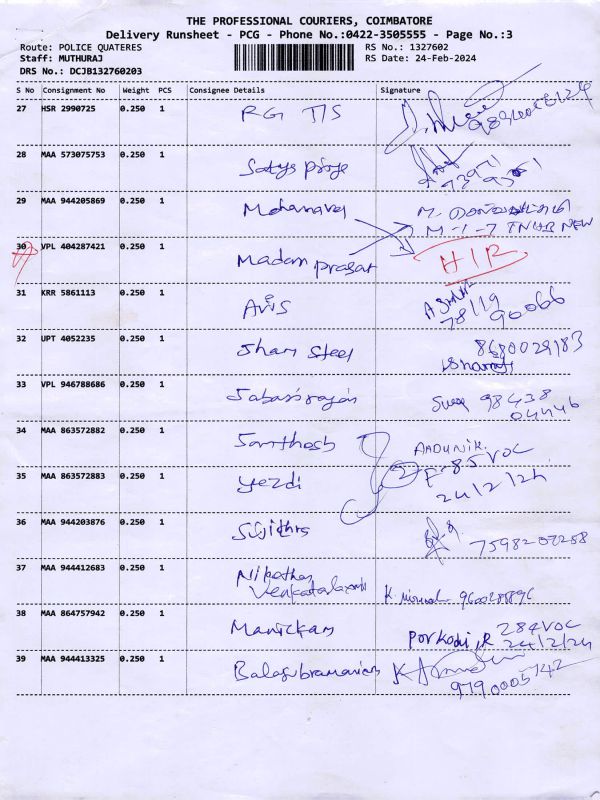 THE PROFESSIONAL COURIERS, COIMBATORE
Delivery Runsheet - PCG - Phone No.:0422-3505555 - Page No.:3
Route: POLICE QUATERES
RS No.: 1327602
Staff: MUTHURAJ
RS Date: 24-Feb-2024
DRS No.: DCJB132760203
S No Consignment No Weight PCS Consignee Details Signature
27 HSR 2990725 0.250 1 RG T/S
28 MAA 573075753 0.250 1 Satys
29 MAA 944205869 0.250 1 Mohanavel M.
M-1-7 TNHB NEW
30 VPL 404287421 0.250 1 Madan prasat H/R
31 KRR 5861113 0.250 1 Avis
78119 90066
32 UPT 4052235 0.250 1 Sham Steel 8680029183
33 VPL 946788686 0.250 1 98438
04446
34 MAA 863572882 0.250 1 Santhosh AADUNIK.
F-85 VOC
35 MAA 863572883 0.250 1 Yezdi 24/2/24
36 MAA 944203876 0.250 1 Sujithrs
37 MAA 944412683 0.250 1
38 MAA 864757942 0.250 1 Manickam Porkodi.R 284 VOC
24/2/24
39 MAA 944413325 0.250 1 Balasubramanian
9790005742